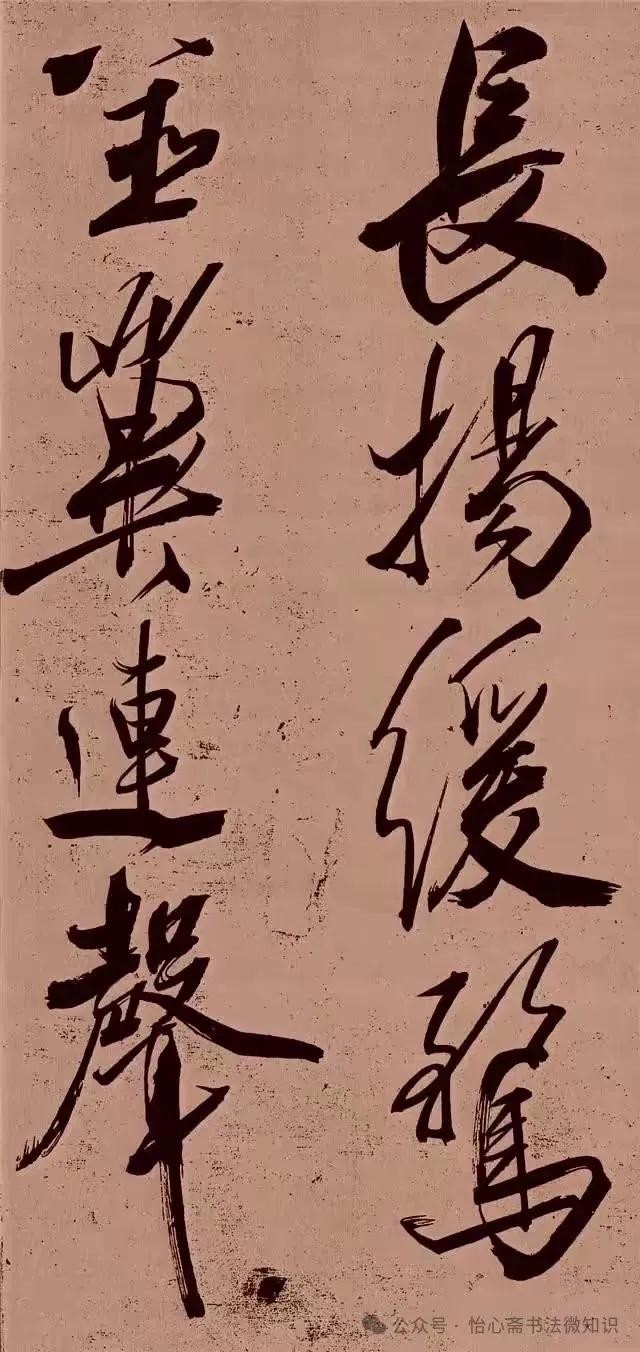 長揚緩騖
並翼連聲
公众号 · 怡心斋书法微知识